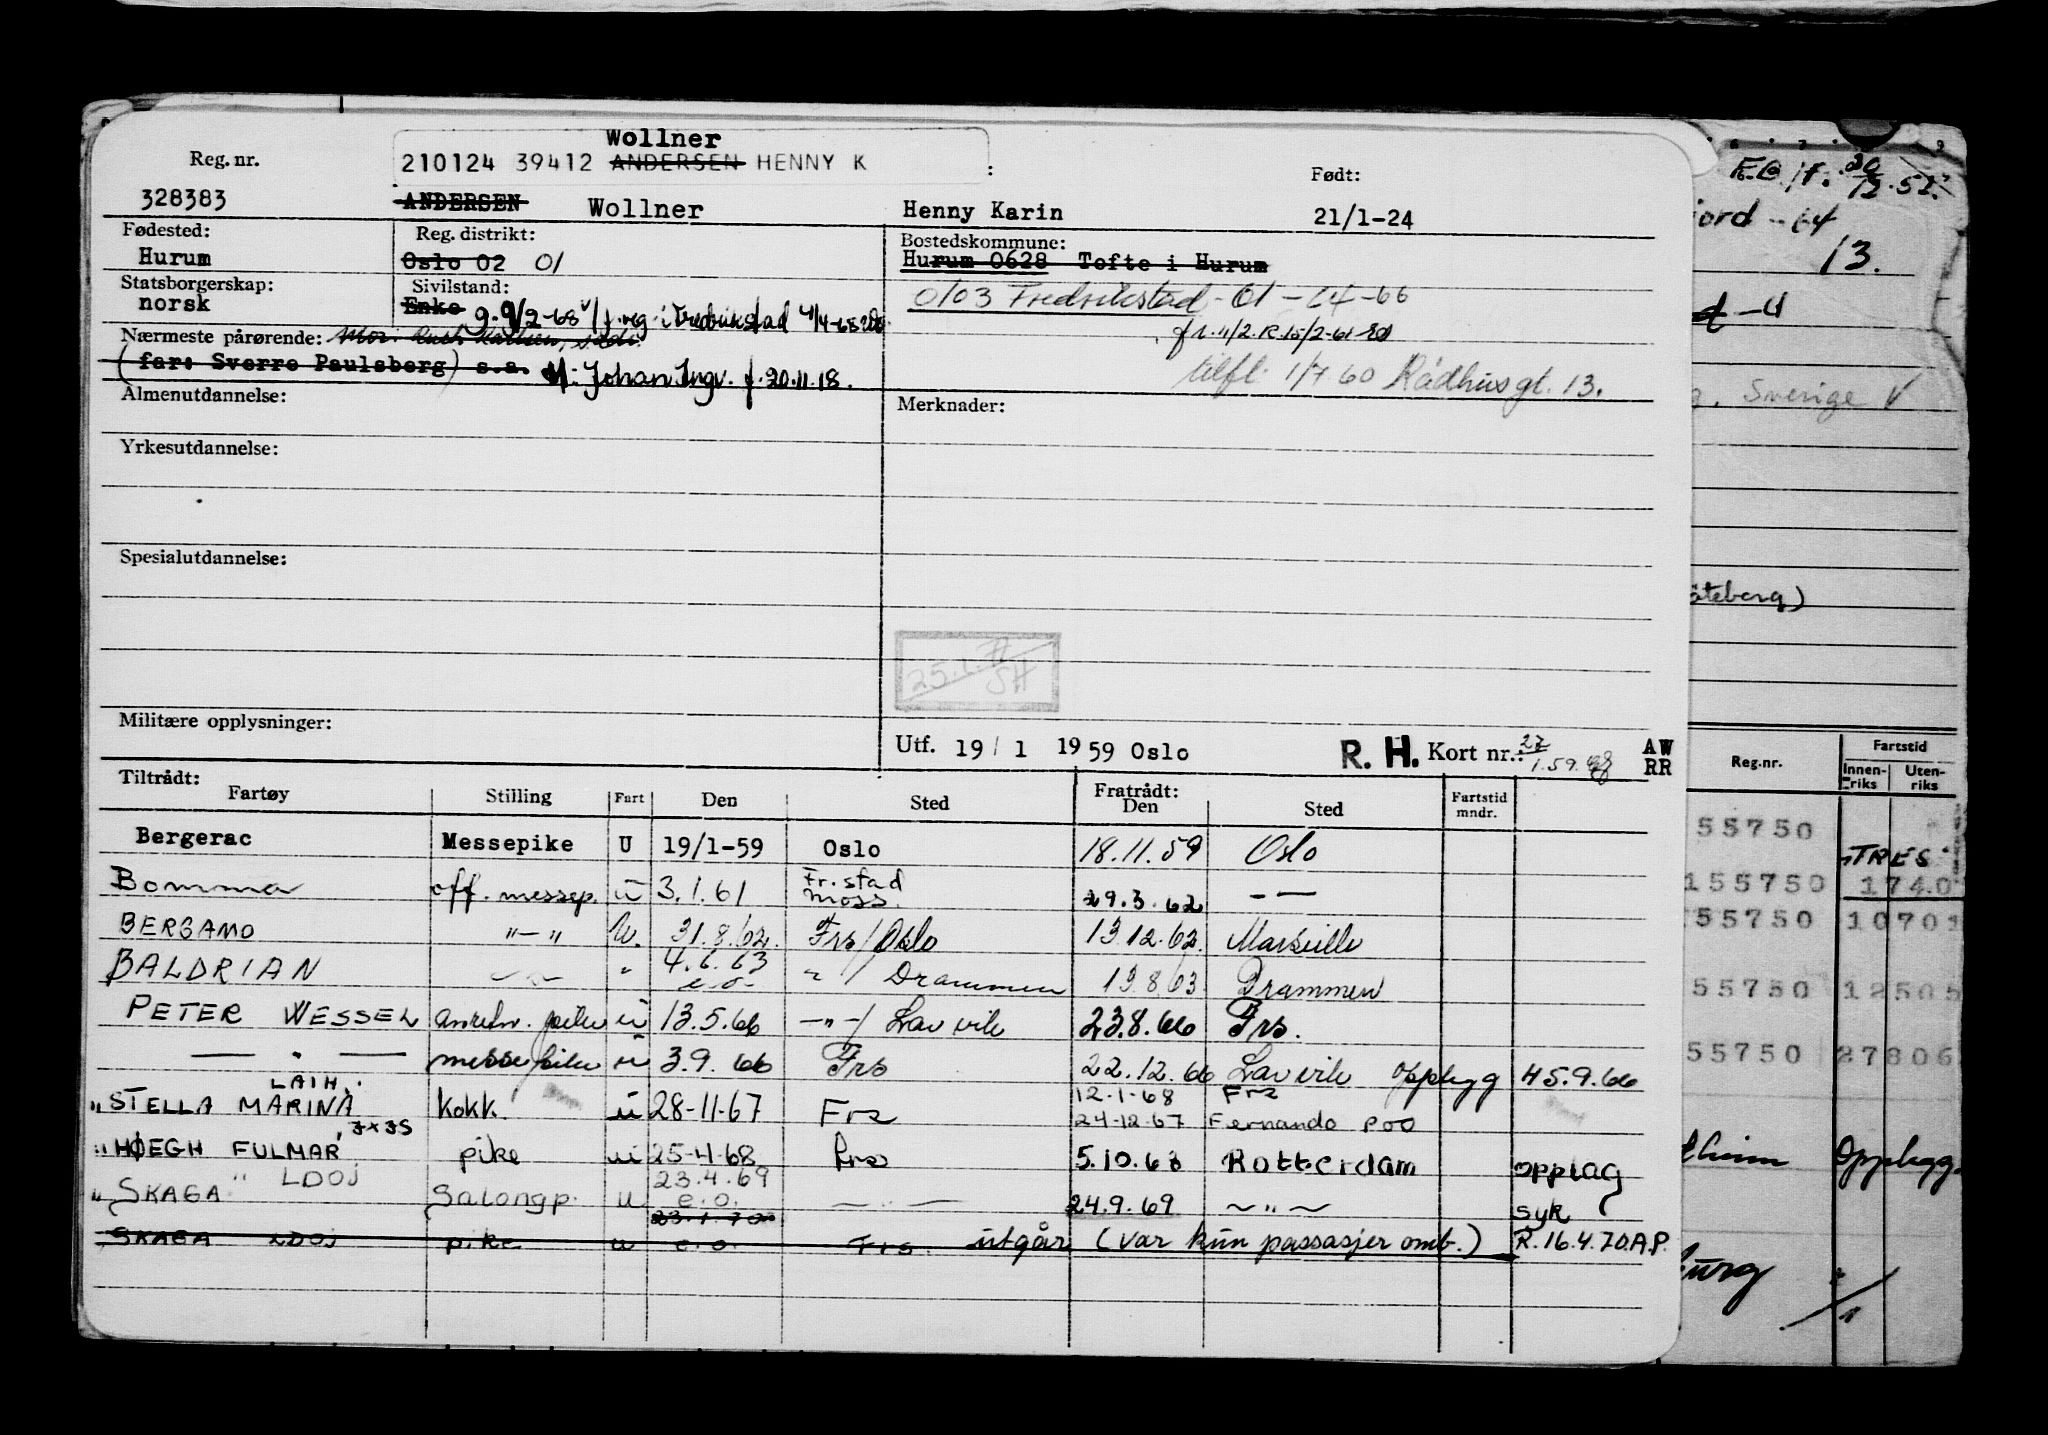 Wollner
Reg. nr. 210124 39412 ANDERSEN HENNY K : Født:
328383 ANDERSEN Wollner Henny Karin 21/1-24
Fødested: Reg. distrikt: Bostedskommune:
Hurum Oslo 02 01 Hurum 0628 Tofte i Hurum
Statsborgerskap: Sivilstand: 0103 Fredrikstad - 01 - 64 - 66
norsk Enke g. 9/2-68 v/f.reg. i Fredrikstad 4/4-68
Nærmeste pårørende: Mor: Ruth Karlsen,
(far: Sverre Paulsberg) s.a. M: Johan Ingv. f. 20.11.18.
tilfl. 1/7 60 Rådhusgt. 13.
Almenutdannelse: Merknader:
Yrkesutdannelse:
Spesialutdannelse:
25.1. SH
Militære opplysninger:
Utf. 19 / 1 19 59 Oslo R. H. Kort nr.: 27/1.59. AW RR
Tiltrådt: Fratrådt:
Fartøy Stilling Fart Den Sted Den Sted Fartstid mndr.
Bergerac Messepike U 19/1-59 Oslo 18.11.59 Oslo
Bomma off. messep. u 3.1.61 Fr.stad Moss. 29.3.62 - —
BERGAMO "—" U. 31.8.62. Frs/Oslo 13.12.62. Marseille
BALDRIAN —"— " 4.6.63 e.o. " / Drammen 19.8.63 Drammen
PETER WESSEL u 13.5.66 —"—/ Larvik 23.8.66 Frs.
— " — messepike u 3.9.66 Frs 22.12.66 Larvik Oppbygg H5.9.66
LAIH. 12.1.68 Frs
"STELLA MARINA Kokk. u 28-11-67 Frs 24-12-67 Fernando Poo
JXJS
"HØEGH FULMAR pike u 25-4-68 Frs 5.10.68 Rotterdam opplag
23.4.69
"SKAGA" LDOJ Salongp. u e.o. — " — 24.9.69 ~ " ~ syk
23.1.70
SKAGA LDOJ pike u e.o. Frs. utgår (var kun passasjer omb.) R.16.4.70.A.P.
E.O. 20/12.52.
jord - 64
13.
Sverige V
öteborg)
Reg.nr. Fartstid
Innenriks Utenriks
55750
TRES
155750 174.0
55750 10701
55750 12505
55750 27806
Oppbygg.